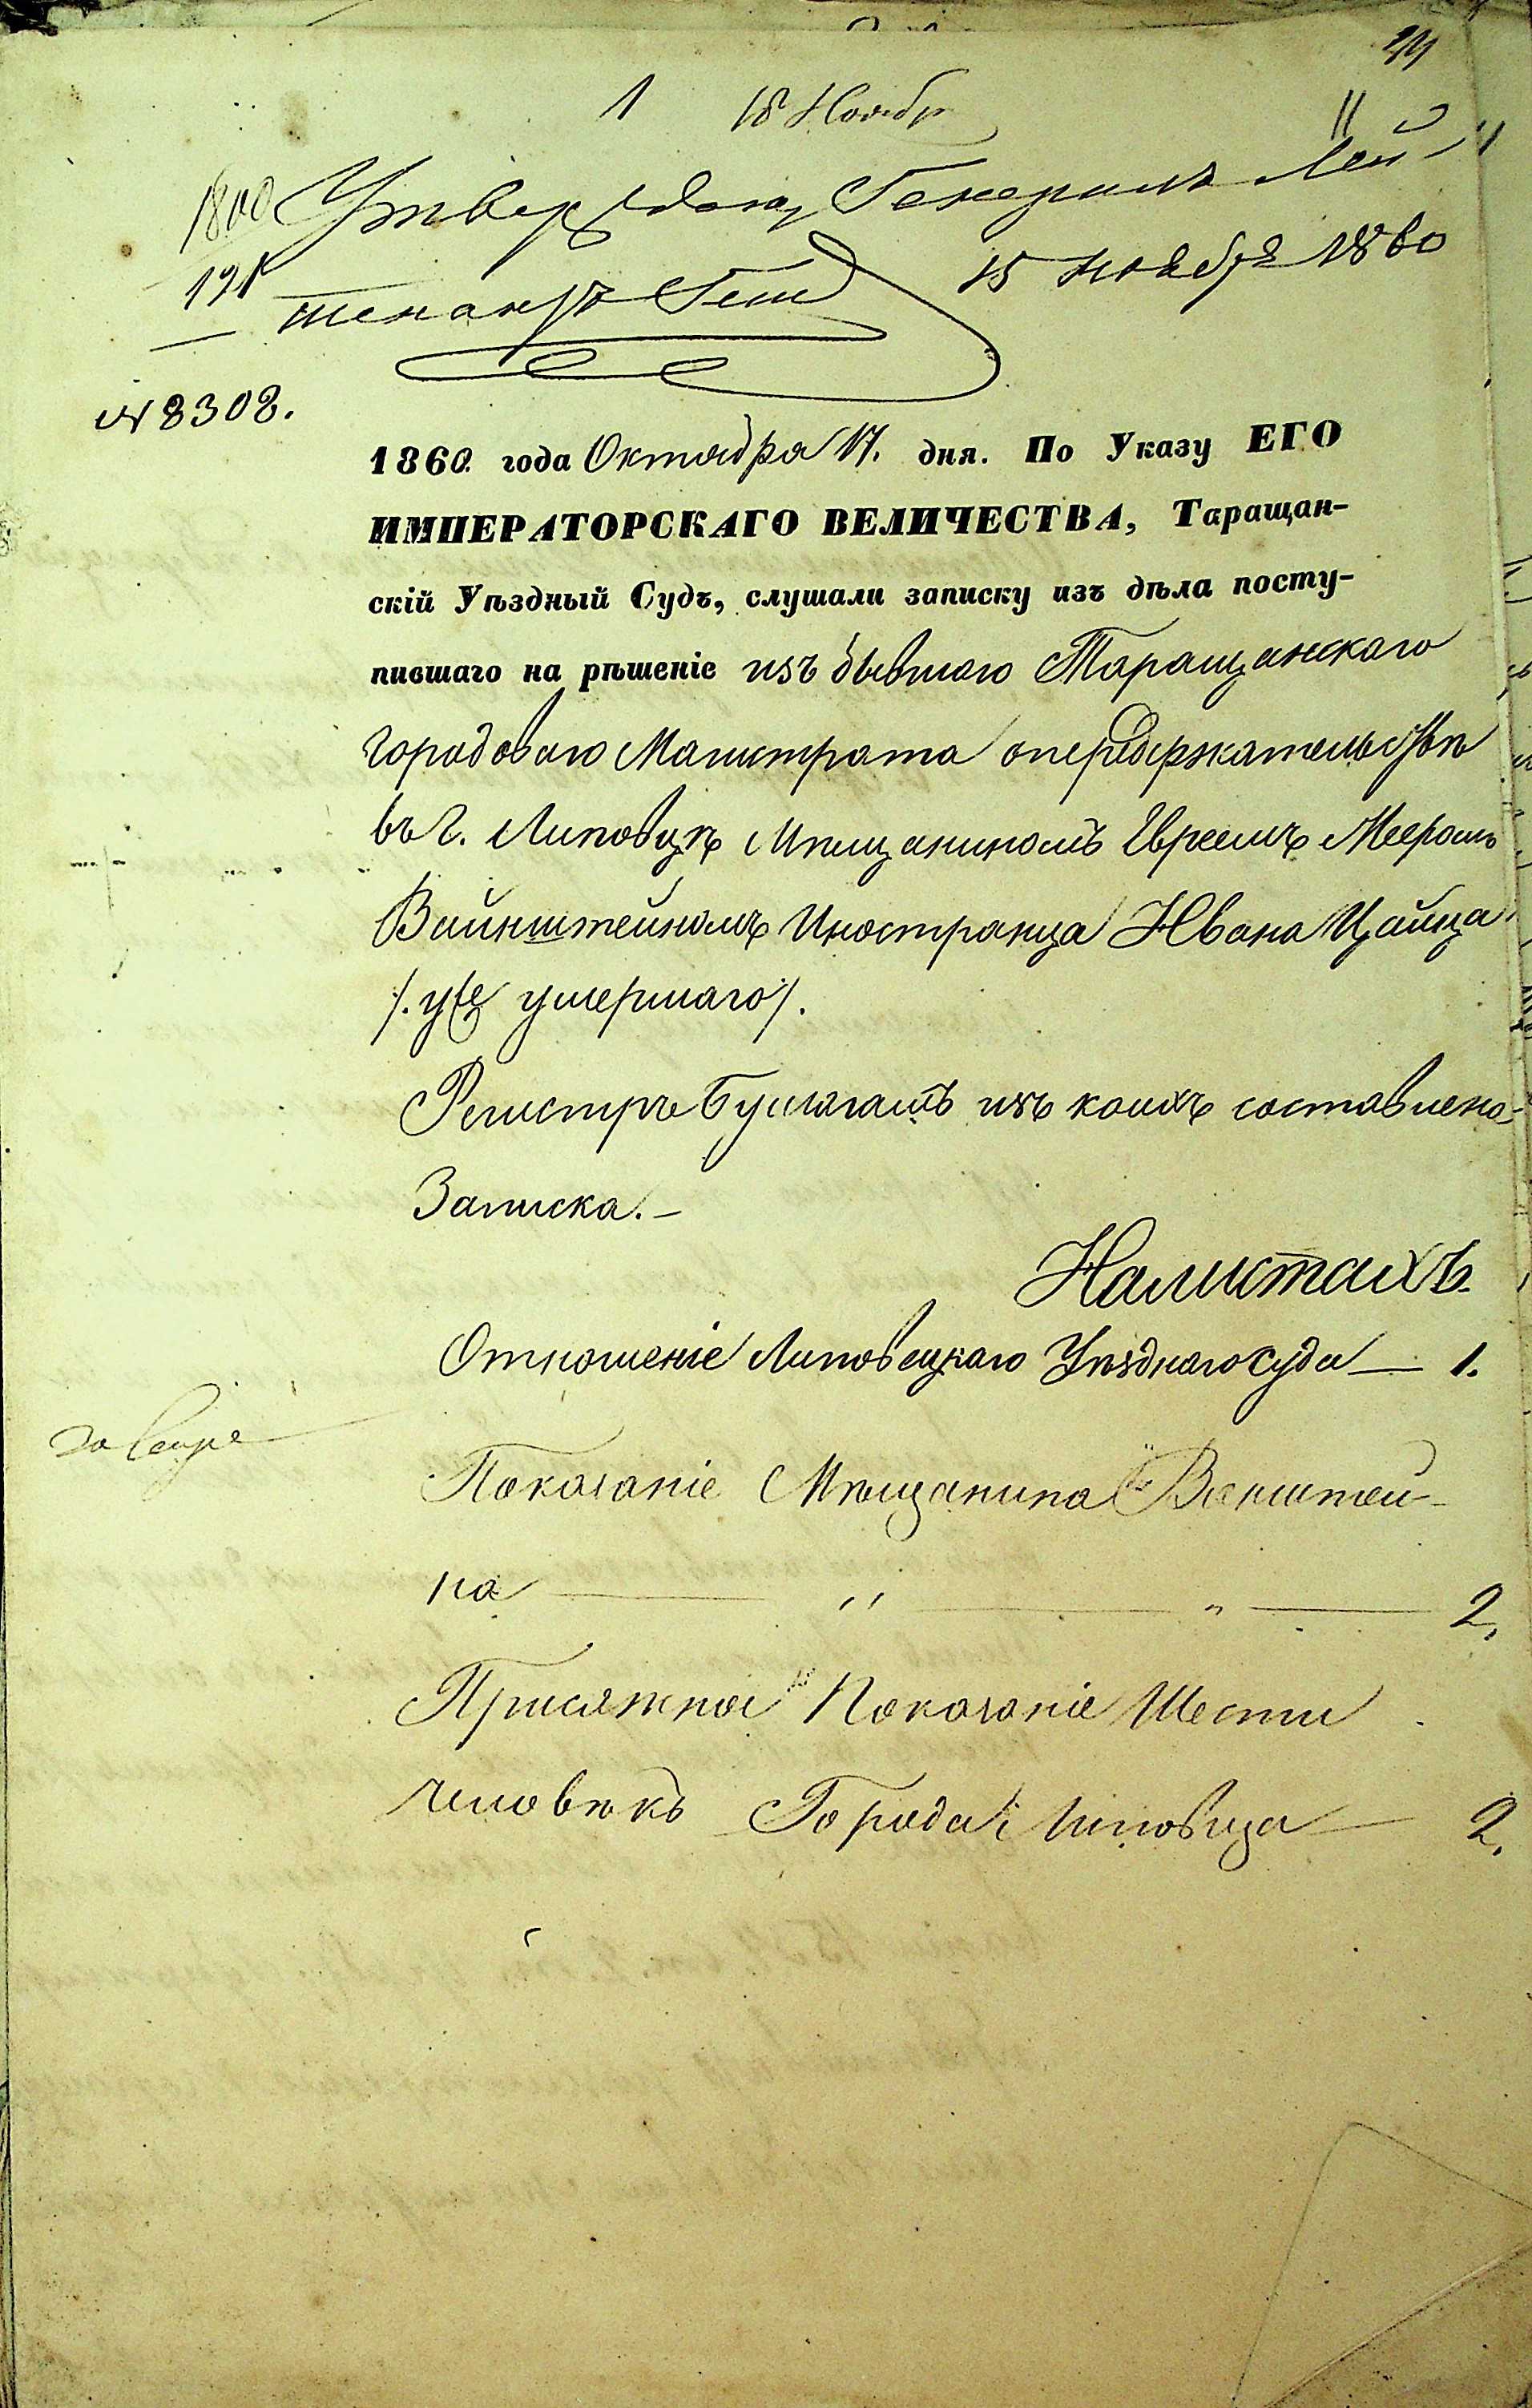 1 18 Ноябр
Утверждаю, Генералъ Лей-
тенантъ Гессе 15 Ноября 1860
№ 8308.
1860. года Октября 17. дня. По Указу ЕГО
ИМПЕРАТОРСКАГО ВЕЛИЧЕСТВА, Таращан-
скій Уѣздный Судъ, слушали записку изъ дѣла посту-
пившаго на рѣшеніе изъ бывшаго Таращанскаго
Городоваго Магистрата о передержательствѣ
въ г. Липовцѣ Мѣщаниномъ Евреемъ Мееромъ
Вайнштейномъ Иностранца Ивана Цайца
/. уже умершаго /.
Регистръ бумагамъ изъ коихъ составлена
Записка. –
На листахъ.
Отношеніе Липовецкаго Уѣзднаго суда — 1.
Показаніе Мѣщанина Ванштей-
на — " — " — 2.
Присяжное Показаніе Шести
человѣкъ Города Липовца — 2.